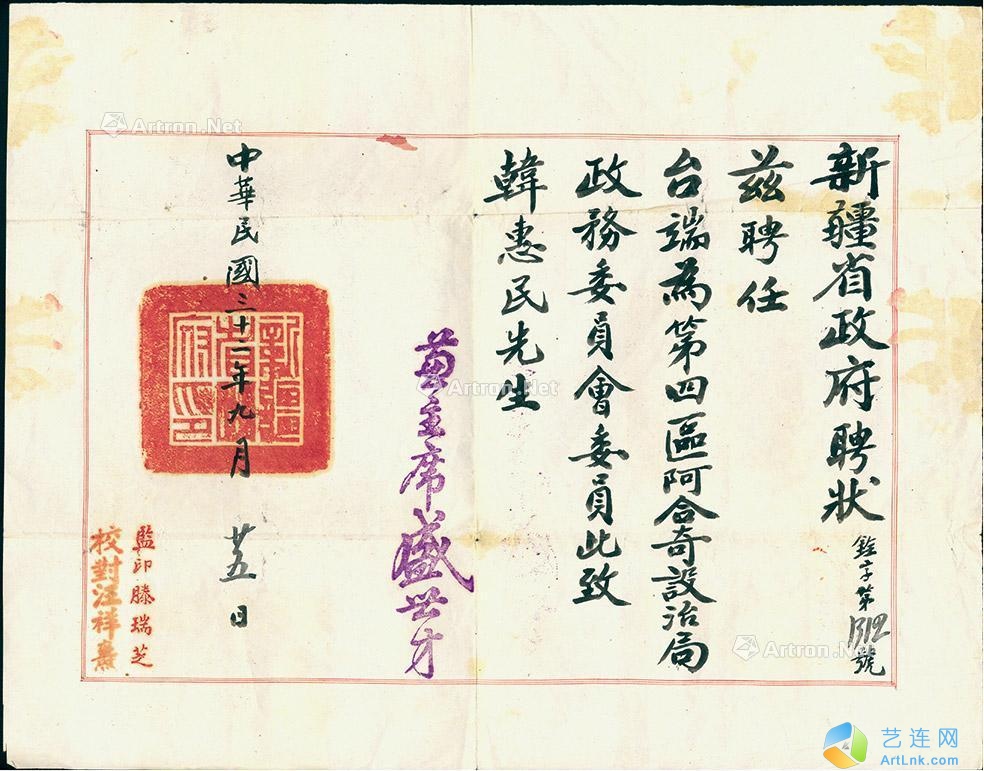 新疆省政府聘狀
銓字第1312號
茲聘任
台端為第四區阿合奇設治局
政務委員會委員此致
韓惠民先生
兼主席盛世才
中華民國三十二年九月廿五日
新疆省政府印
監印滕瑞芝
校對汪祥
Artron.Net
Artron.Net
Artron.Net
艺连网
ArtLnk.com